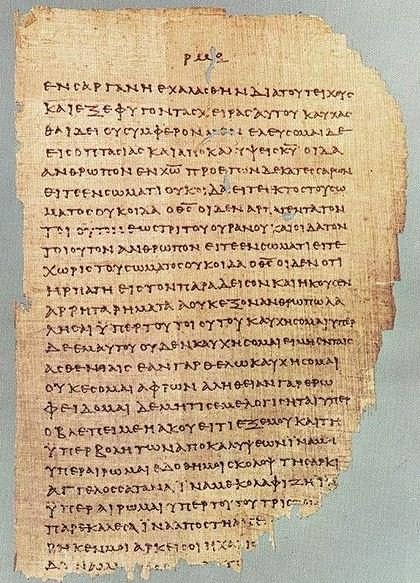 ΡΜϚ
ΕΝCΑΡΓΑΝΗΕΧΑΛΑCΘΗΝΔΙΑΤΟΥΤΕΙΧΟΥC
ΚΑΙΕΞΕΦΥΓΟΝΤΑCΧΕΙΡΑCΑΥΤΟΥΚΑΥΧΑC
ΘΑΙΔΕΙΟΥCΥΜΦΕΡΟΝΜΕΝΕΛΕΥCΟΜΑΙΔΕ
ΕΙCΟΠΤΑCΙΑCΚΑΙΑΠΟΚΑΛΥΨΕΙCΚ̅Υ̅ΟΙΔΑ
ΑΝΘΡΩΠΟΝΕΝΧ̅Ω̅ΠΡΟΕΤΩΝΔΕΚΑΤΕCCΑΡΩΝ
ΕΙΤΕΕΝCΩΜΑΤΙΟΥΚΟΙΔΑΕΙΤΕΕΚΤΟCΤΟΥCΩ
ΜΑΤΟCΟΥΚΟΙΔΑΟΘ̅C̅ΟΙΔΕΝΑΡΠΑΓΕΝΤΑΤΟΝ
ΤΟΙΟΥΤΟΝΕΩCΤΡΙΤΟΥΟΥΡΑΝΟΥΚΑΙΟΙΔΑΤΟΝ
ΤΟΙΟΥΤΟΝΑΝΘΡΩΠΟΝΕΙΤΕΕΝCΩΜΑΤΙΕΙΤΕ
ΧΩΡΙCΤΟΥCΩΜΑΤΟCΟΥΚΟΙΔΑΟΘ̅C̅ΟΙΔΕΝΟΤΙ
ΗΡΠΑΓΗΕΙCΤΟΝΠΑΡΑΔΕΙCΟΝΚΑΙΗΚΟΥCΕΝ
ΑΡΡΗΤΑΡΗΜΑΤΑΑΟΥΚΕΞΟΝΑΝΘΡΩΠΩΛΑ
ΛΗCΑΙΥΠΕΡΤΟΥΤΟΙΟΥΤΟΥΚΑΥΧΗCΟΜΑΙΥΠΕΡ
ΔΕΕΜΑΥΤΟΥΟΥΔΕΝΚΑΥΧΗCΟΜΑΙΕΙΜΗΕΝΤΑΙC
ΑCΘΕΝΕΙΑΙCΕΑΝΓΑΡΘΕΛΩΚΑΥΧΗCΟΜΑΙ
ΟΥΚΕCΟΜΑΙΑΦΡΩΝΑΛΗΘΕΙΑΝΓΑΡΕΡΩ
ΦΕΙΔΟΜΑΙΔΕΜΗΤΙCΕΜΕΛΟΓΙCΗΤΑΙΥΠΕΡ
ΟΒΛΕΠΕΙΜΕΗΑΚΟΥΕΙΤΙΕΞΕΜΟΥΚΑΙΤΗ
ΥΠΕΡΒΟΛΗΤΩΝΑΠΟΚΑΛΥΨΕΩΝΙΝΑΜΗ
ΥΠΕΡΑΙΡΩΜΑΙΕΔΟΘΗΜΟΙCΚΟΛΟΨΤΗCΑΡΚΙ
ΑΓΓΕΛΟCCΑΤΑΝΑΪΝΑΜΕΚΟΛΑΦΙΖΗΪ
ΫΠΕΡΑΙΡΩΜΑΙΫΠΕΡΤΟΥΤΟΥΤΡΙC
ΠΑΡΕΚΑΛΕCΑΪΝΑΑΠΟCΤΗ
ΡΗΚΕΝΜΟΙΑΡΚΕΙCΟΙΗΧΑΡΙC